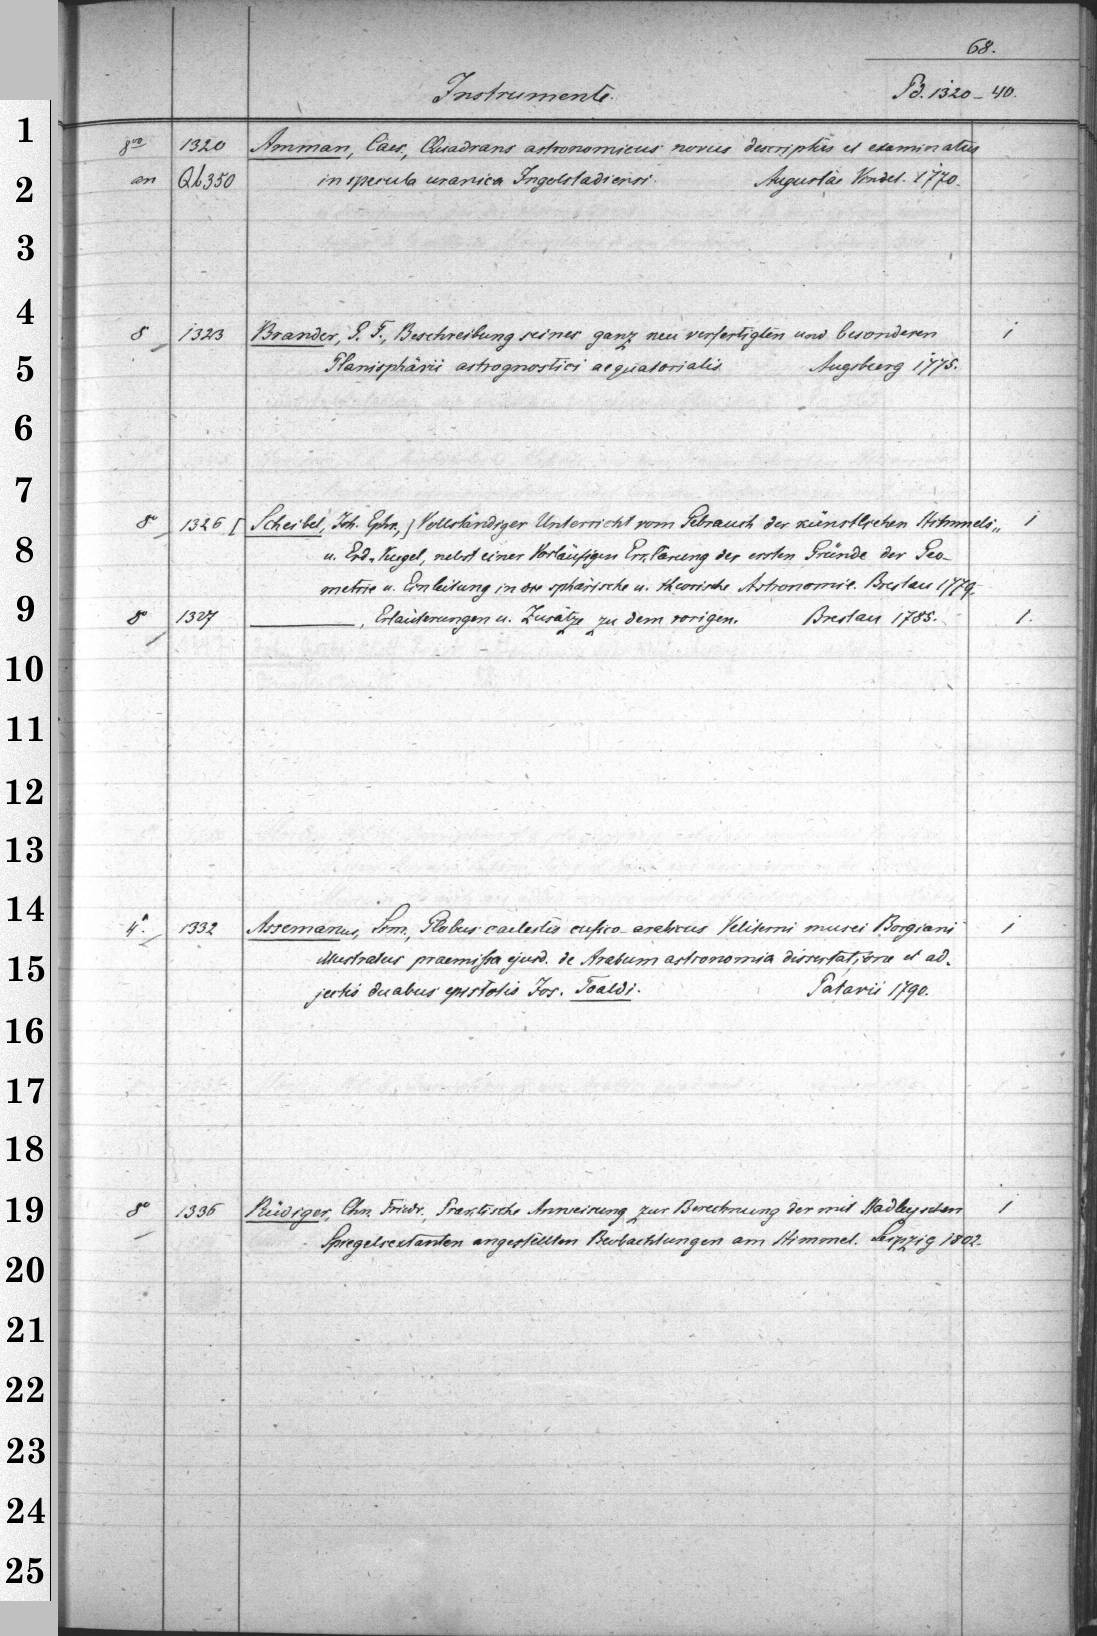 68.
Instrumente. Pd. 1320 - 40.
1
8vo 1320 Amman, Caes., Quadrans astronomicus novus descriptus et examinatus
2
an Qb350 in specula uranica Ingolstadiensi. Augustae Vindel. 1770.
3
4
8 1323 Brander, G. F., Beschreibung seines ganz neu verfertigten und besonderen 1
5
Planisphärii astrognostici aequatorialis. Augsburg 1775.
6
7
8o 1326 [Scheibel, Joh. Ephr.,] Vollständiger Unterricht vom Gebrauch der künstlichen Himmels- 1
8
u. Erd-Kugel, nebst einer Vorläufigen Erklärung der ersten Gründe der Geo-
metrie u. Einleitung in die sphärische u. theorische Astronomie. Breslau 1779.
9
8o 1327 ———, Erläuterungen u. Zusätze zu dem vorigen. Breslau 1785. 1.
10
11
12
13
14
4o. 1332 Assemanus, Sim., Globus caelestis cufico-arabicus Veliterni musei Borgiani 1
15
illustratus praemissa ejusd. de Arabum astronomia dissertatione et ad-
jectis duabus epistolis Jos. Toaldi. Patavii 1790.
16
17
18
19
8o 1336 Rüdiger, Chn. Friedr., Praktische Anweisung zur Berechnung der mit Hadleyschen 1
Spiegelsextanten angestellten Beobachtungen am Himmel. Leipzig 1802.
20
21
22
23
24
25